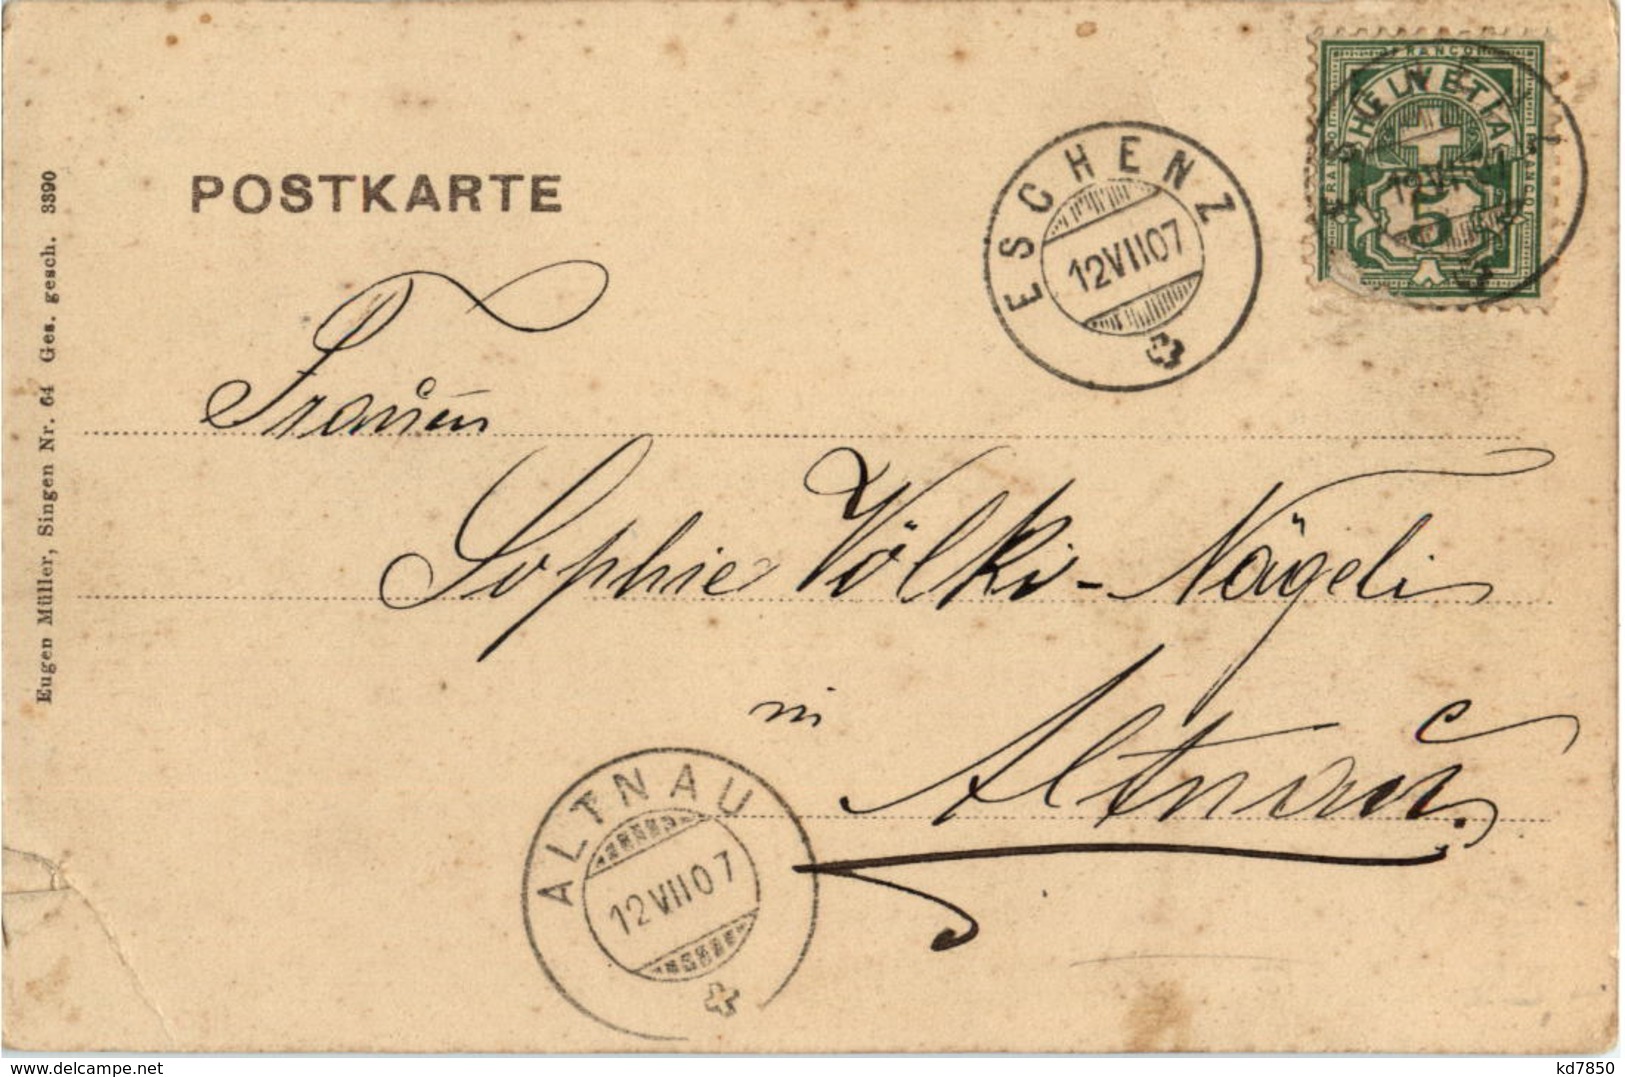 POSTKARTE
Eugen Müller, Singen Nr. 64 Ges. gesch. 3390
FRANCO
HELVETIA
FRANCO
5
12 VII
ESCHENZ
12 VII 07
Sophie Völki-Nägeli
in
Altnau.
ALTNAU
12 VII 07
delcampe.net
kd7850